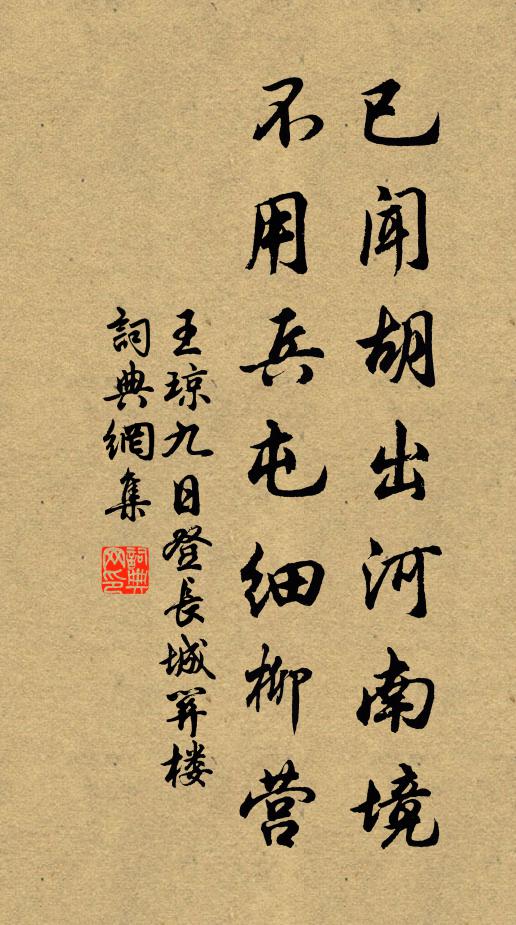 已闻胡出河南境
不用兵屯细柳营
王琼九日登长城关楼
詞典網集
詞典
网印